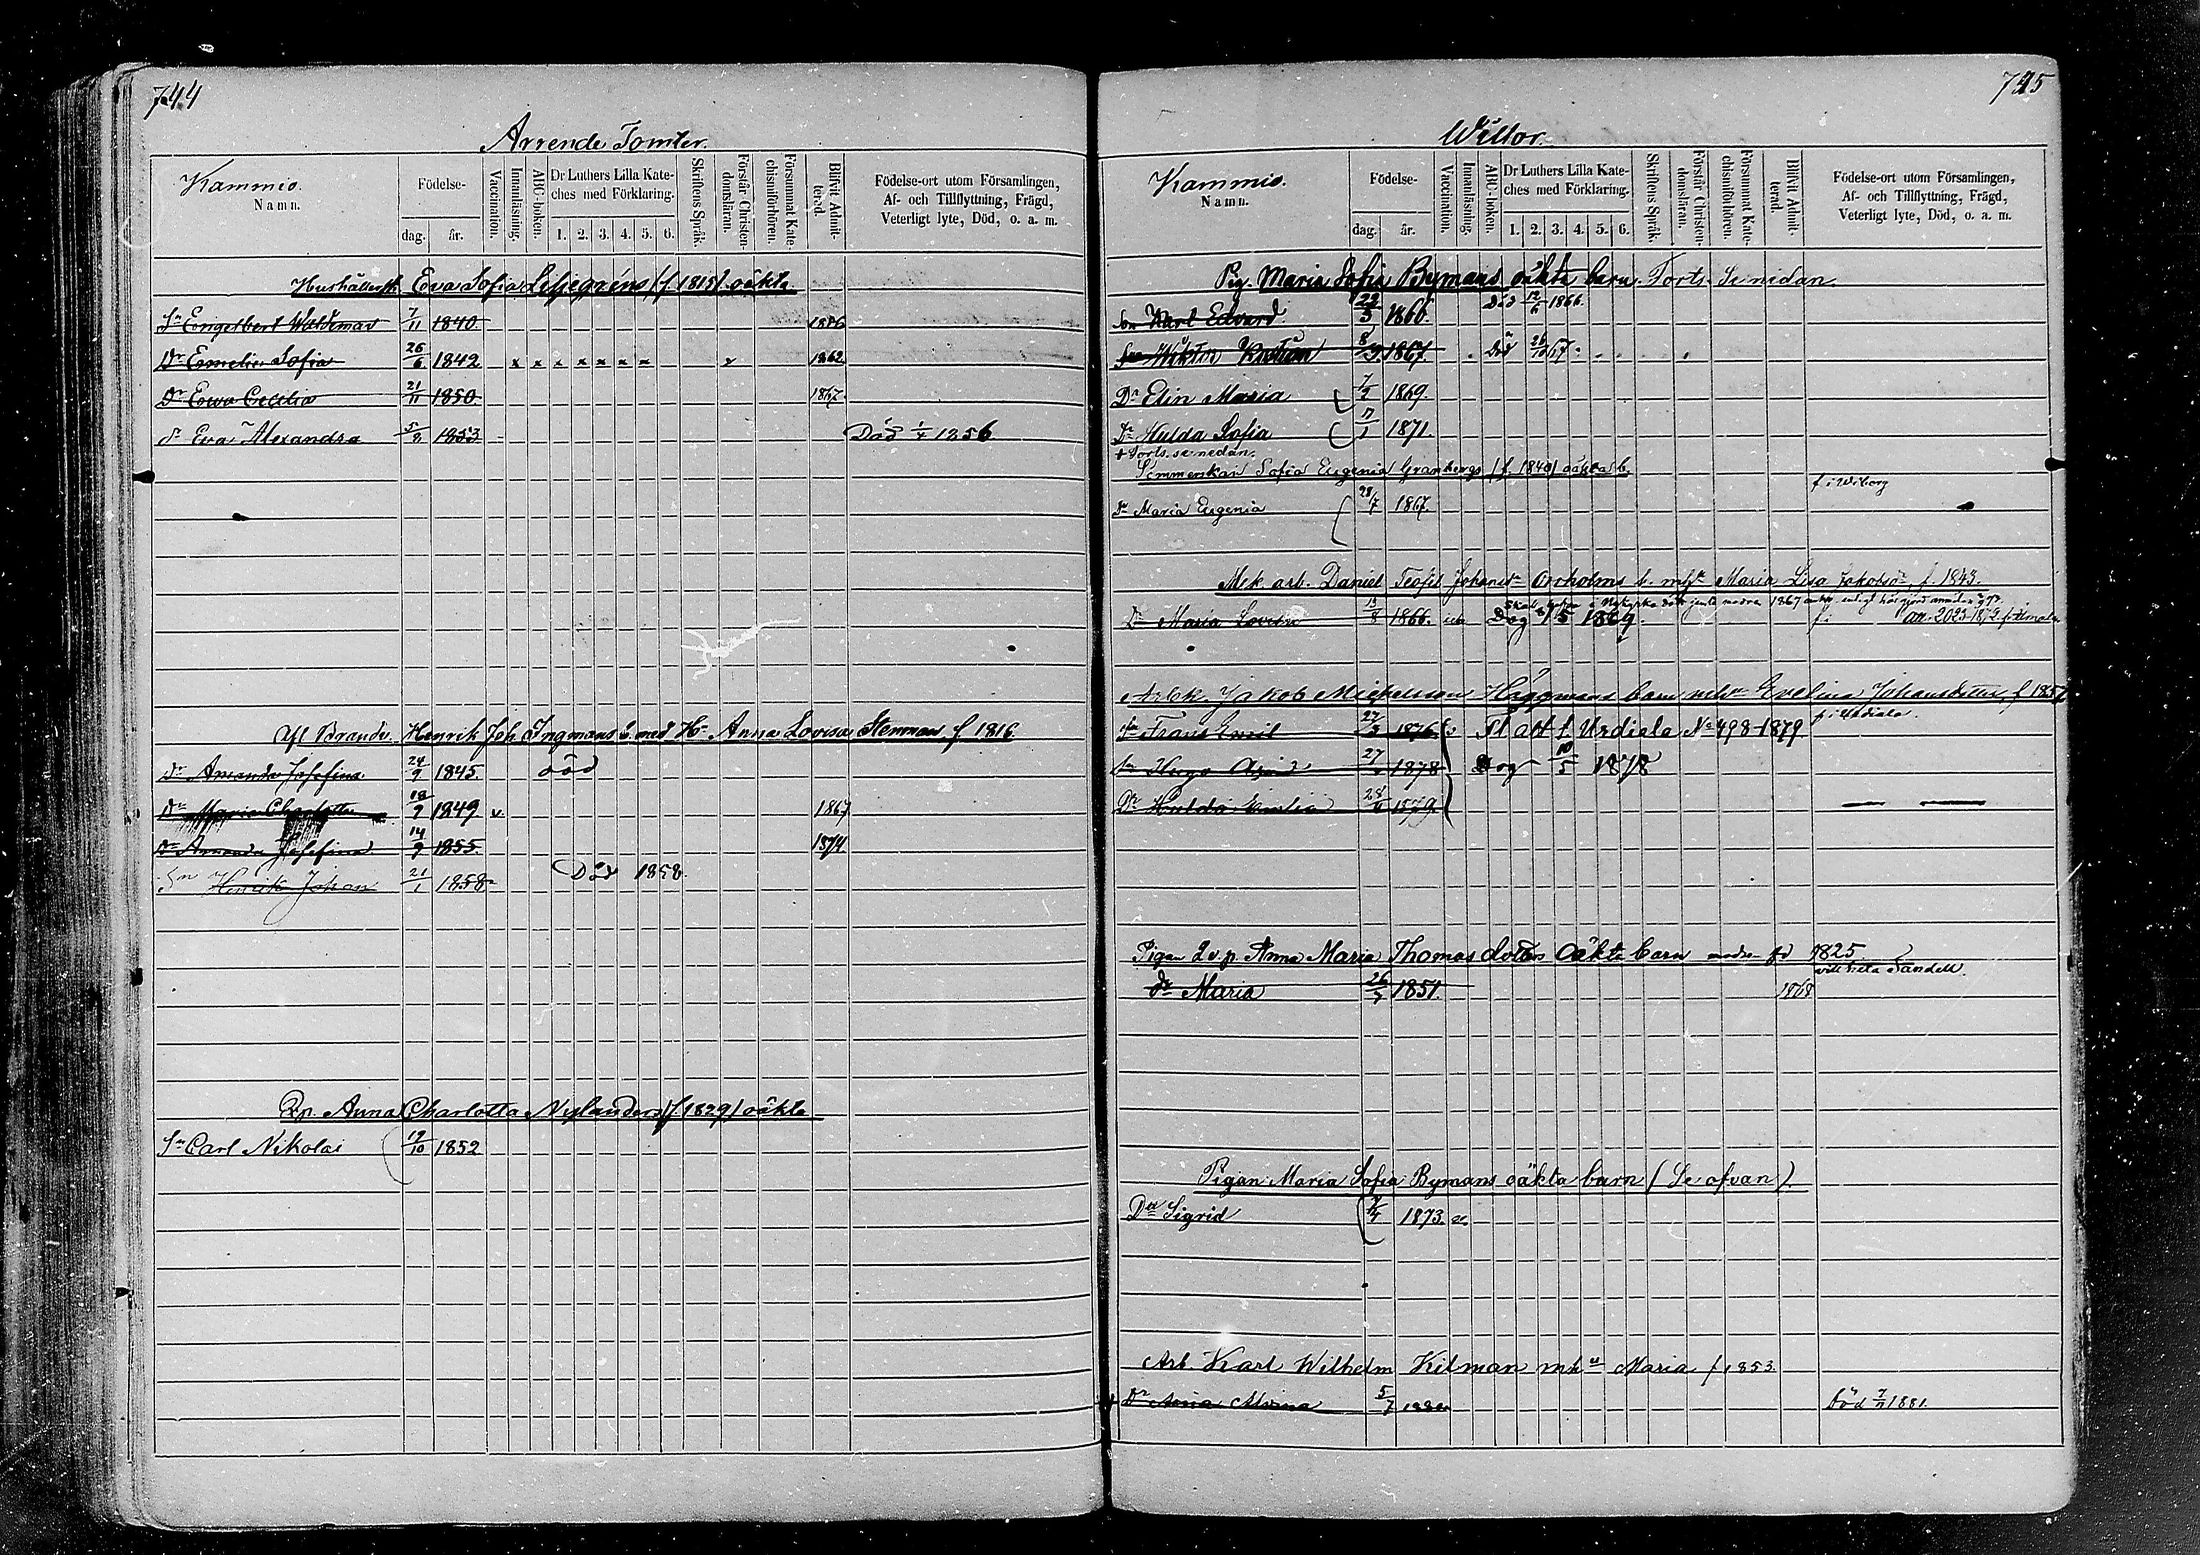 744
Arrende Tomter.
Kammio.
Namn.
Födelse-
dag. år.
Vaccination.
Innanläsning.
ABC-boken.
Dr Luthers Lilla Kate-
ches med Förklaring.
1. 2. 3. 4. 5. 6.
Skriftens Språk.
Förstår Christen-
domsläran.
Försummat Kate-
chismiförhören.
Blifvit Admit-
terad.
Födelse-ort utom Församlingen,
Af- och Tillflyttning, Frägd,
Veterligt lyte, Död, o. a. m.
Eva Sofia Liljegréns (f. 1815) oäkta
Sn Engelbert Waldemar 7/11 1840.
Dr Emelie Sofia 26/6 1842 x x x x x x x 1862
Dr Cecilia 21/11 1850 1867
Dr Eva Alexandra 5/8 1853 Död 1/4 1856
Afl Brandv. Henrik Joh Ingmans b. med Hu Anna Lovisa Stenman f 1816
Dr Amanda Josefina 24/9 1845. död
Dr Maria Charlotta 18/9 1849 v 1867
Dr Amanda Josefina 14/9 1855. 1874
Sn Henrik Johan 21/1 1858 Död 1858.
Anna Charlotta Nylanders (f. 1829) oäkta
Sn Carl Nikolai 19/10 1852
745
Kammio.
Namn.
Födelse-
dag. år.
Vaccination.
Innanläsning.
ABC-boken.
Dr Luthers Lilla Kate-
ches med Förklaring.
1. 2. 3. 4. 5. 6.
Skriftens Språk.
Förstår Christen-
domsläran.
Försummat Kate-
chismiförhören.
Blifvit Admit-
terad.
Födelse-ort utom Församlingen,
Af- och Tillflyttning, Frägd,
Veterligt lyte, Död, o. a. m.
Pig. Maria Sofia Bymans oäkta barn. Forts. Se nidan.
Son Karl Edvard 1866. Död 12/6 1866.
Wiktor 1867. Död 26/10 67.
Dr Elin Maria 7/2 1869.
Dr Hulda Sofia 1871.
+ Forts. se nedan.
Sömmerskan Sofia Eugenia Granbergs (f. 1840) oäkta b.
f. i Wiborg
Dr Maria Eugenia 28/7 1867.
Mek arb. Daniel Teofil Johanss. b. m hu Maria Lisa Jakobsd. f. 1843.
Dr Maria Lovisa 1866. Dog 1/5 1869.
Jakob Michelsson Häggmans barn mhu Evelina Johansdotter f 1857
f. i Urdiala.
Sn Frans Emil 1876 Fl att f. Urdiala No 498-1879
1878 Dog 10/5 1878
Dr Hulda Emilia
Pigan Anna Maria Thomasdotters Oäkta barn modren fd 1825.
Dr Maria 26/7 1851. 1868
Pigan Maria Sofia Bymans oäkta barn (Se ofvan).
Dr Sigrid 1873.
Arb. Karl Wilhelm Kilman mhu Maria f 1853.
Dr Alvina 5/7 Död 7/7 1881.